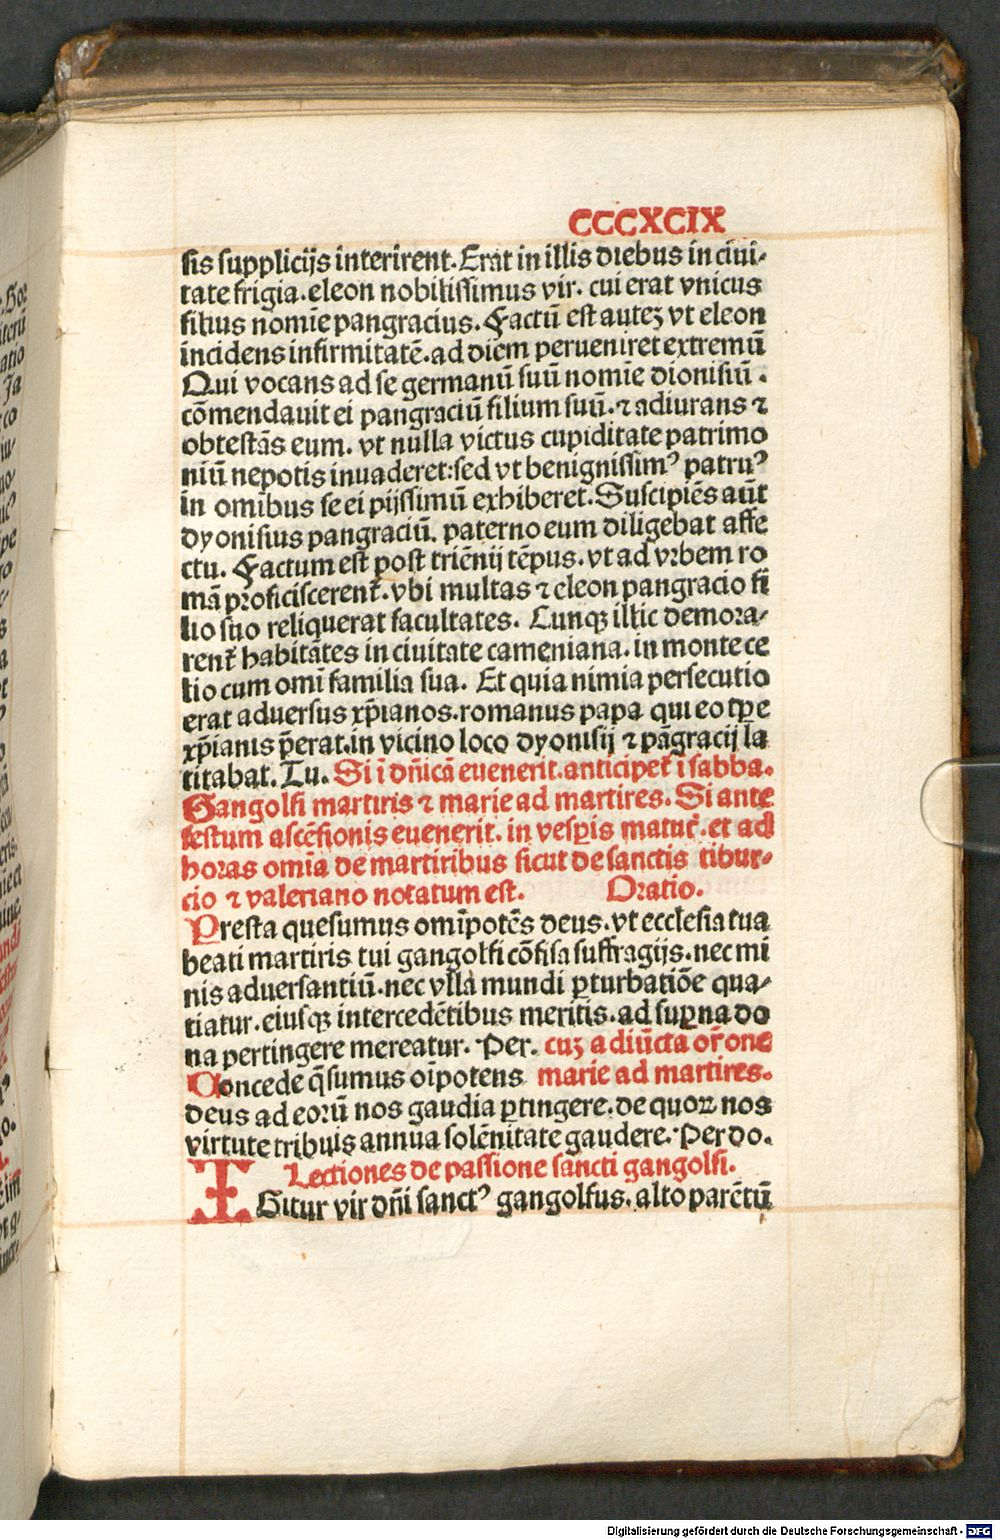 CCCXCIX
sis supplicijs interirent. Erat in illis diebus in ciui-
tate frigia. eleon nobilissimus vir. cui erat vnicus
filius nomīe pangracius. Factū est autez vt eleon
incidens infirmitatē. ad diem perueniret extremū
Qui vocans ad se germanū suū nomīe dionisiū.
cōmendauit ei pangraciū filium suū. ⁊ adiurans ⁊
obtestās eum. vt nulla victus cupiditate patrimo
niū nepotis inuaderet: sed vt benignissimꝰ patruꝰ
in omībus se ei pijssimū exhiberet. Suscipiēs aūt
dyonisius pangraciū. paterno eum diligebat affe
ctu. Factum est post triēnij tēpus. vt ad vrbem ro
mā proficiscerent̄. vbi multas ⁊ eleon pangracio fi
lio suo reliquerat facultates. Cunqꝫ illic demora-
rent̄ habitātes in ciuitate cameniana. in monte ce
lio cum omī familia sua. Et quia nimia persecutio
erat aduersus xp̄ianos. romanus papa qui eo tꝑe
xp̄ianis p̄erat. in vicino loco dyonisij ⁊ pāgracij la
titabat. Tu. Si ī dn̄icā euenerit. anticipet̄ ī sabba.
Gangolfi martiris ⁊ marie ad martires. Si ante
festum ascēsionis euenerit. in vesꝑis matut̄. et ad
horas omīa de martiribus sicut de sanctis tibur-
cio ⁊ valeriano notatum est. Oratio.
Presta quesumus omīpotēs deus. vt ecclesia tua
beati martiris tui gangolfi cōfisa suffragijs. nec mī
nis aduersantiū. nec vlla mundi ꝑturbatiōe qua-
tiatur. eiusqꝫ intercedētibus meritis. ad suꝑna do
na pertingere mereatur. Per. cuz adiūcta or̄one
Concede q̄sumus oīpotens marie ad martires.
deus ad eorū nos gaudia ꝑtingere. de quoꝝ nos
virtute tribuis annua solēnitate gaudere. Per do.
Lectiones de passione sancti gangolfi.
IGitur vir dn̄i sanctꝰ gangolfus. alto parētū
Digitalisierung gefördert durch die Deutsche Forschungsgemeinschaft - DFG